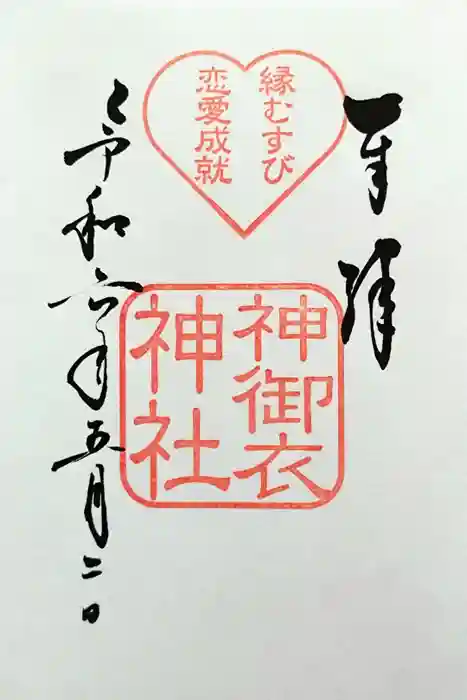 奉拝
縁むすび
恋愛成就
神御衣
神社
令和六年五月二日